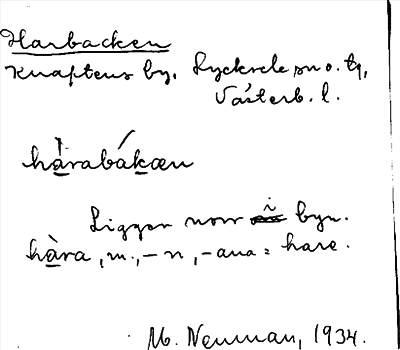 Harbacken
Knaftens by, Lycksele sn o. tg,
Västerb. l.
hàrabákæn
Ligger norr i byn.
hàra, m., -n, -ana = hare.
M. Neuman, 1934.